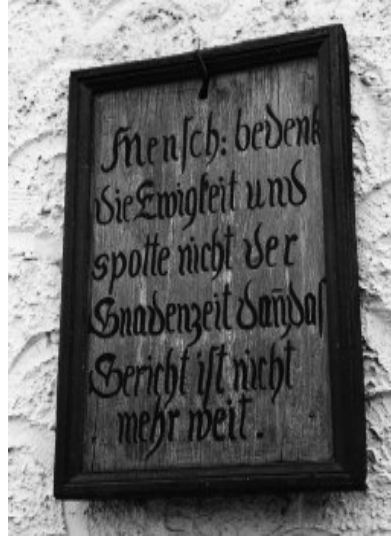 Mensch: bedenk
die Ewigkeit und
spotte nicht der
Gnadenzeit dañdas
Gericht ist nicht
mehr weit.